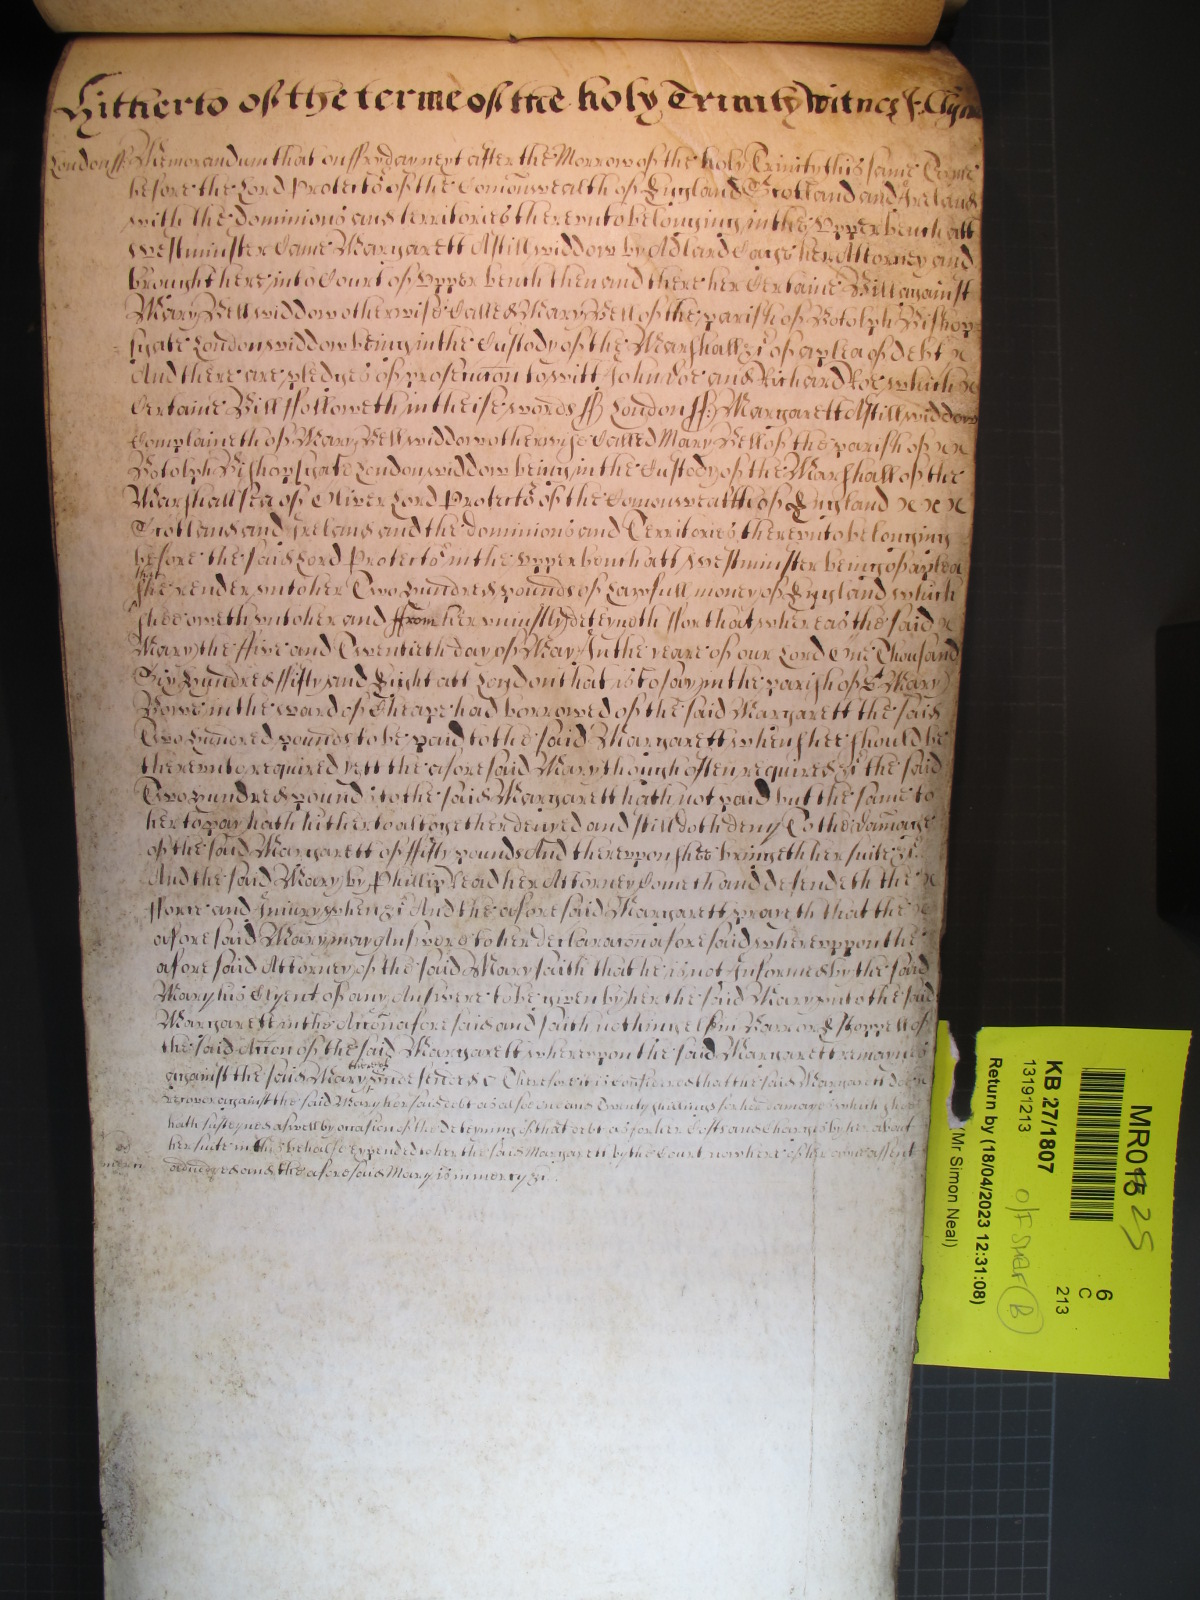 Hitherto of the terme of the holy Trinity Witnes J. Glynn
London ss Memorandum that on ffryday next after the Morrow of the holy Trinity this same Terme
before the Lord Protector of the Comonwealth of England Scotland and Ireland
with the dominions and territories therevnto belonging in the Vpper bench att
Westminster Came Margarett Astill widdow by Adland her Attorney and
brought here into Court of Vpper bench then and there her Certaine Bill against
Mary Bell widdow otherwise Called Mary Bell of the parish of Botolph Bishops
gate London widdow being in the Custody of the Marshall &c of a plea of debt
And there are pledges of prosecucon to witt John Doe and Richard Roe which
Certaine Bill ffolloweth in theise words ss London ss Margarett Astill widdow
Complaineth of Mary Bell widdow otherwise Called Mary Bell of the parish of
Botolph Bishopsgate London widdow being in the Custody of the Marshall of the
Marshallsea of Oliver Lord Protector of the Comonwealth of England
Scotland and Ireland and the dominions and Territories therevnto belonging
before the said Lord Protector in the Vpper bench att Westminster being of a plea
that
she render vnto her Two hundred pounds of Lawfull money of England which
shee oweth vnto her and from her vniustly deteyneth ffor that whereas the said
Mary the ffive and Twentieth day of May In the yeare of our Lord One Thousand
Six hundred ffifty and Eight att London that is to say in the parish of St Mary
Bowe in the ward of Cheape had borrowed of the said Margarett the said
Two hundred pounds to be paid to the said Margarett when shee should be
therevnto required yett the aforesaid Mary though often required &c the said
Two hundred pounds to the said Margarett hath not paid but the same to
her to pay hath hitherto altogether denyed and still doth deny To the damage
of the said Margarett of ffifty pounds And therevpon shee bringeth her suite &c
And the said Mary by Phillip Read her Attorney Cometh and defendeth the
fforce and Iniury when &c And the aforesaid Margarett prayeth that the
aforesaid Mary may Answere to her declaracon aforesaid wherevppon the
aforesaid Attorney of the said Mary saith that he is not Informed by the said
Mary his Clyent of any Answere to be given by her the said Mary vnto the said
Margarett in the Accon aforesaid and saith nothing else in Barr or Estoppell of
the said Accon of the said Margarett wherevppon the said Margarett remaynes
thereof
against the said Mary vndefended &c Therefore it is Considered that the said Margarett doe
recover against the said Mary her said debt as alsoe One and Twenty shillings for her damages which shee
hath susteyned aswell by occasion of the deteyning of that debt as for her Costs and Charges by her about
her suite in this behalfe expended to her the said Margarett by the Court now here of her owne assent
adiudged and the aforesaid Mary is in mercy &c
MR015 25
6
C
213
KB 27/1807
13191213
O/F Shelf B
Return by (18/04/2023 12:31:08)
(Mr Simon Neal)